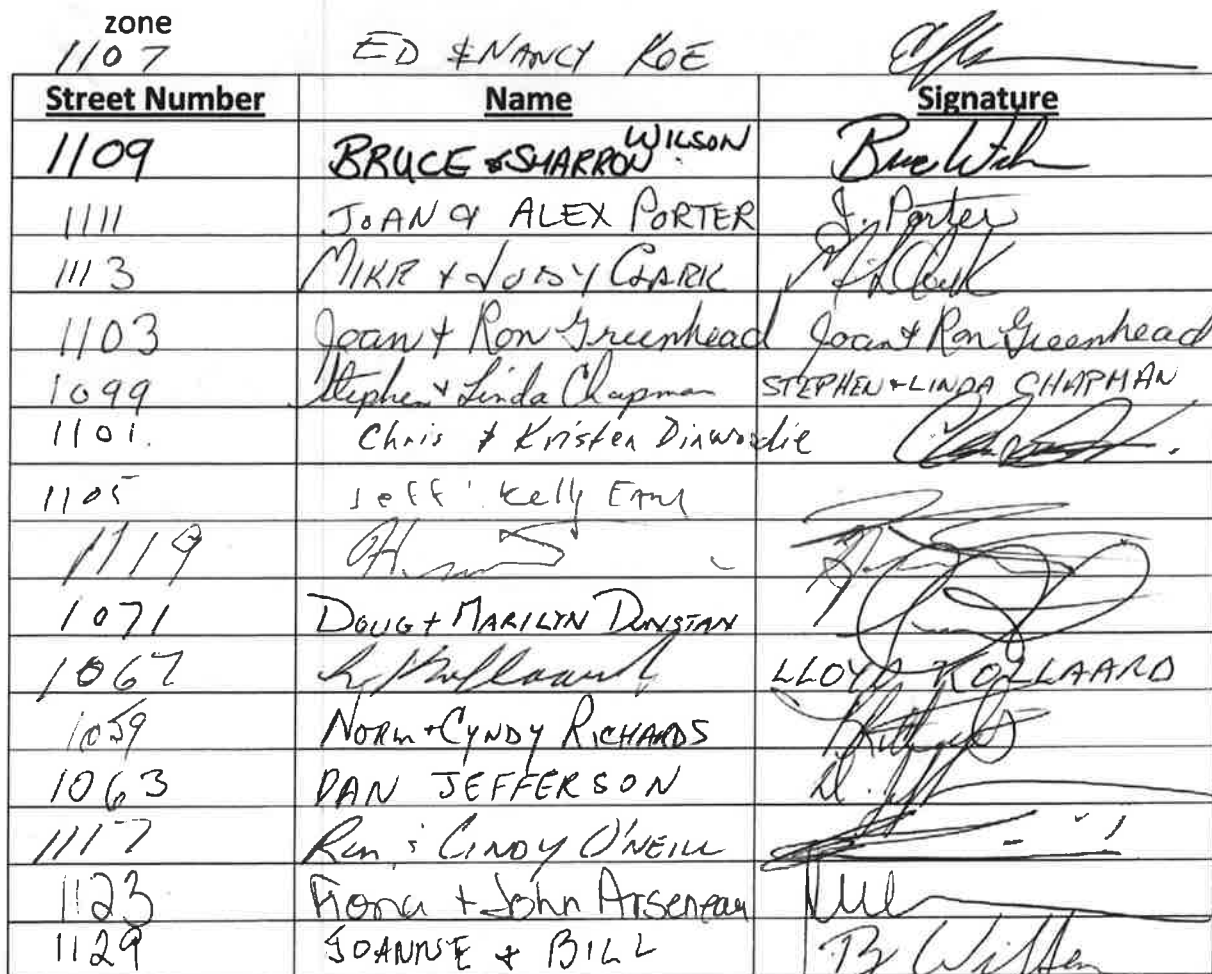 zone
1107 ED & NANCY KOE
Street Number Name Signature
1109 BRUCE & SHARRON WILSON Bruce Wil
1111 JOAN & ALEX PORTER J. Porter
1113 MIKE + JUDY CLARK Mik Clark
1103 Joan + Ron Greenhead Joan + Ron Greenhead
1099 Stephen + Linda Chapman STEPHEN + LINDA CHAPMAN
1101. Chris & Kristen Dinwoodie
1105 Jeff Kelly
1119
1071 DOUG + MARILYN DUNSTAN
1067 L. Kollaard LLOYD KOLLAARD
1059 NORM + CYNDY RICHARDS
1063 DAN JEFFERSON
1117 Ron & CINDY O'NEILL
1123 Fiona + John Arseneau
1129 JOANNE & BILL